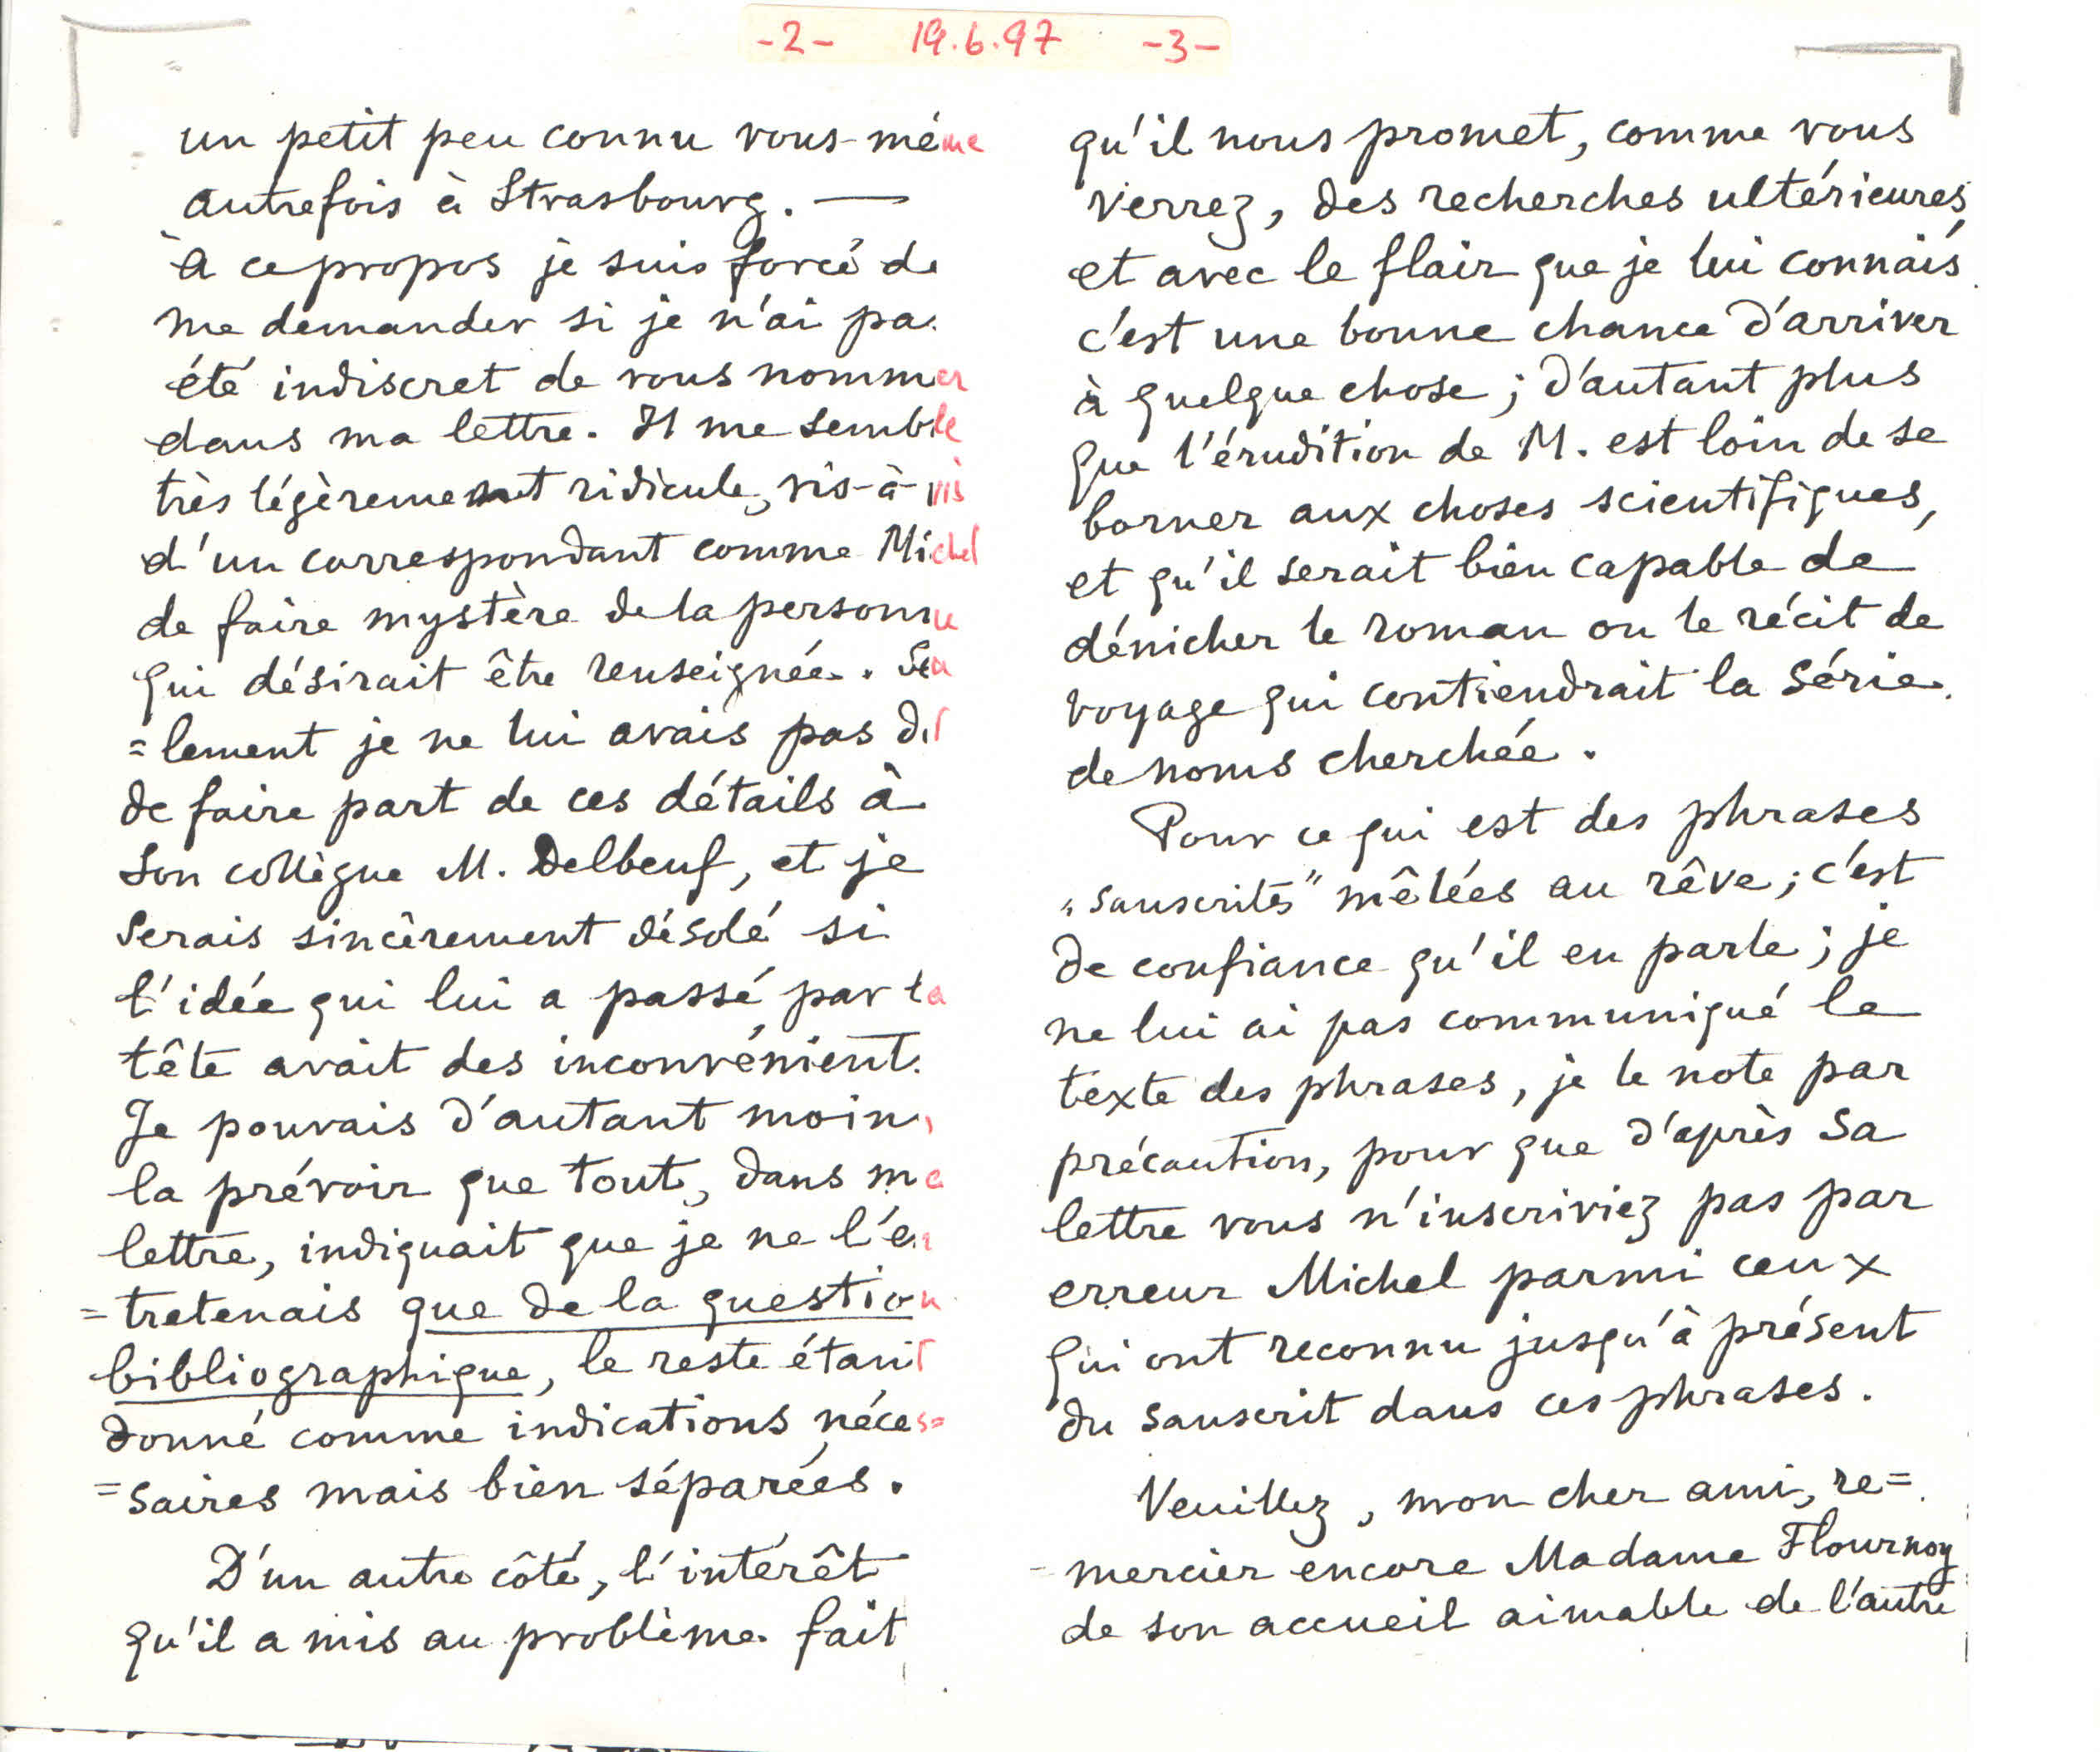 -2- 19.6.97 -3-
un petit peu connu vous-même
autrefois à Strasbourg. —
À ce propos je suis forcé de
me demander si je n'ai pas
été indiscret de vous nommer
dans ma lettre. Il me semble
très légèrement ridicule, vis-à-vis
d'un correspondant comme Michel
de faire mystère de la personne
qui désirait être renseignée. Seu
=lement je ne lui avais pas dit
de faire part de ces détails à
son collègue M. Delbeuf, et je
serais sincèrement désolé si
l'idée qui lui a passé par la
tête avait des inconvénient.
Je pouvais d'autant moins
la prévoir que tout, dans ma
lettre, indiquait que je ne l'en
=tretenais que de la question
bibliographique, le reste étant
donné comme indications néces=
=saires mais bien séparées.
D'un autre côté, l'intérêt
qu'il a mis au problème fait
qu'il nous promet, comme vous
verrez, des recherches ultérieures,
et avec le flair que je lui connais
c'est une bonne chance d'arriver
à quelque chose; d'autant plus
que l'érudition de M. est loin de se
borner aux choses scientifiques,
et qu'il serait bien capable de
dénicher le roman ou le récit de
voyage qui contiendrait la série
de noms cherchée.
Pour ce qui est des phrases
„sanscrites" mêlées au rêve; c'est
de confiance qu'il en parle; je
ne lui ai pas communiqué le
texte des phrases, je le note par
précaution, pour que d'après sa
lettre vous n'inscriviez pas par
erreur Michel parmi ceux
qui ont reconnu jusqu'à présent
du sanscrit dans ces phrases.
Veuillez, mon cher ami, re=
=mercier encore Madame Flournoy
de son accueil aimable de l'autre